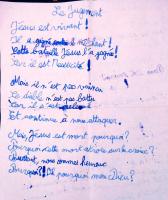 Le Jugement
Jésus est vivant !
Il a gagné contre le méchant !
Cette bataille Jésus l'a gagné !
Car il est Ressucité !
Mais il n'est pas vaincu
Le diable n'est pas battu
Car il s'est
Et continue à nous attaquer.
Mais, Jésus est mort pourquoi ?
Pourquoi cette mort atroce sur la croix ?
Pourtant, nous sommes heureux
Pourquoi ? Et pourquoi mon Dieu ?